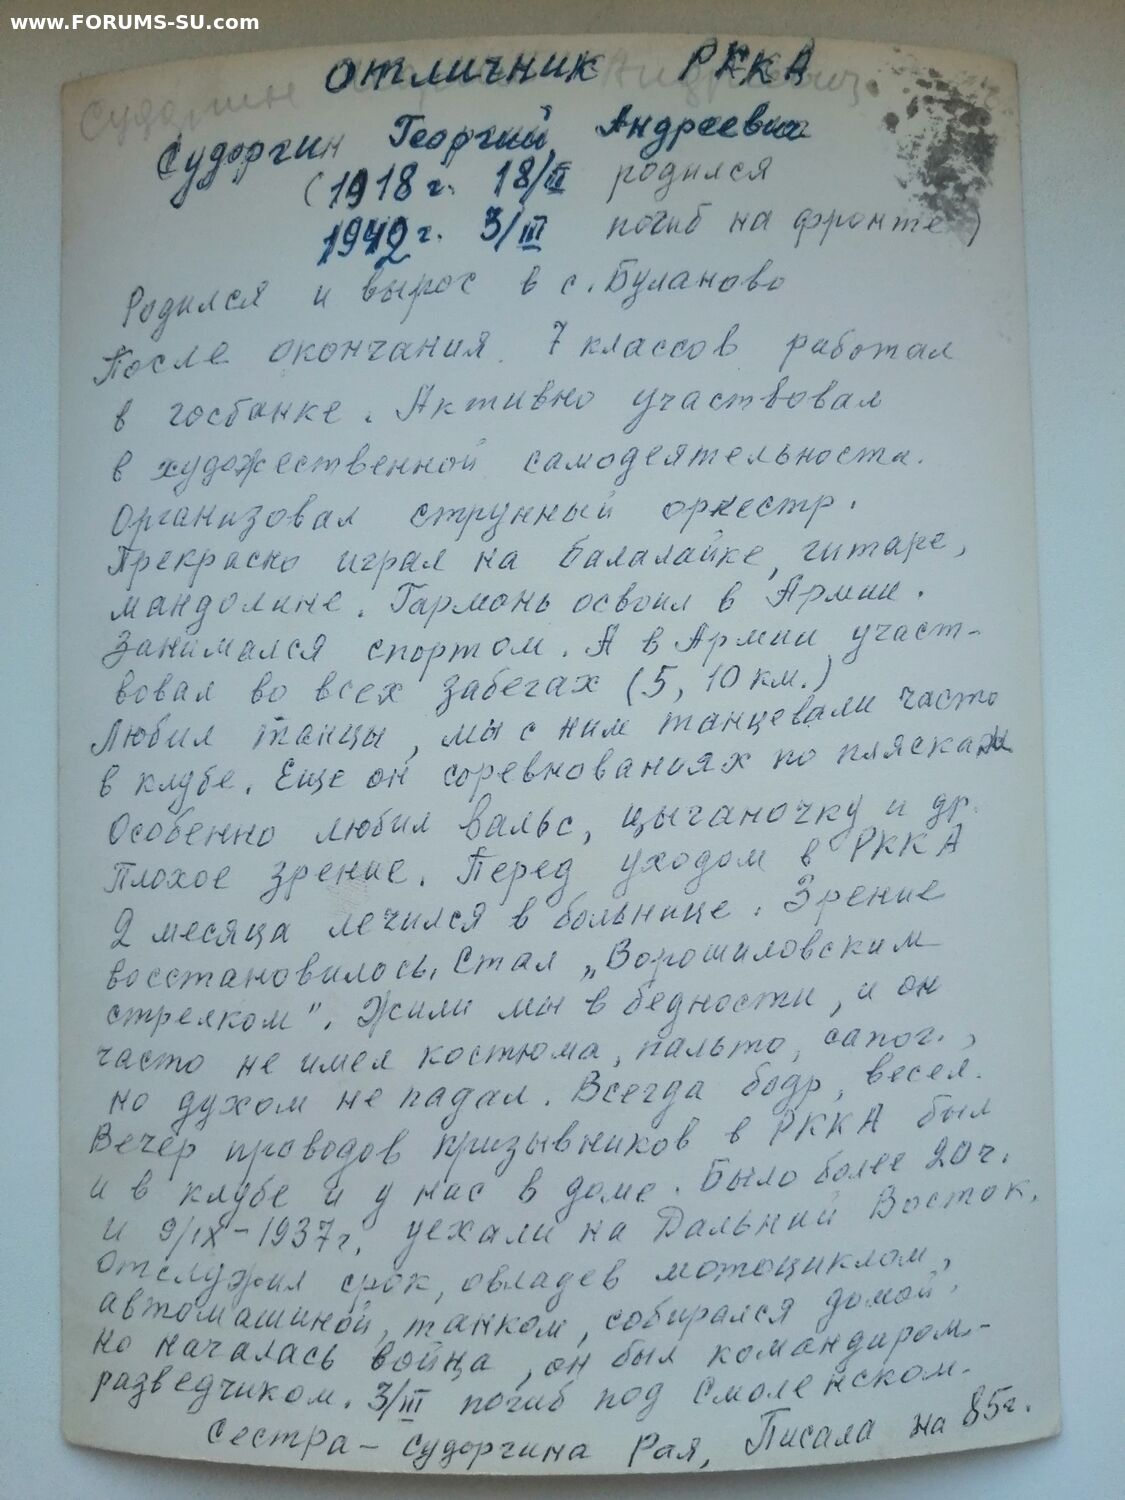 www.FORUMS-SU.com
Отличник РККА
Судоргин Георгий Андреевич
(1918 г. 18/II родился
1942 г. 3/III погиб на фронте)
Родился и вырос в с. Буланово
После окончания 7 классов работал
в госбанке. Активно участвовал
в художественной самодеятельности.
Организовал струнный оркестр.
Прекрасно играл на балалайке, гитаре,
мандолине. Гармонь освоил в Армии.
Занимался спортом. А в Армии участ-
вовал во всех забегах (5, 10 км.)
Любил танцы, мы с ним танцевали часто
в клубе. Еще он соревнованиях по пляскам
Особенно любил вальс, цыганочку и др.
Плохое зрение. Перед уходом в РККА
2 месяца лечился в больнице. Зрение
восстановилось. Стал „Ворошиловским
стрелком". Жили мы в бедности, и он
часто не имел костюма, пальто, сапог.,
но духом не падал. Всегда бодр, весел.
Вечер проводов призывников в РККА был
и в клубе и у нас в доме. Было более 20 ч.
и 9/IX-1937 г. уехали на Дальний Восток.
Отслужил срок, овладев мотоциклом,
автомашиной, танком, собирался домой,
но началась война, он был командиром-
разведчиком. 3/III погиб под Смоленском.
Сестра - Судоргина Рая, Писала на 85 г.